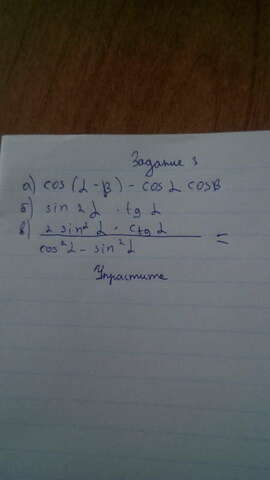 Задание 3
а) cos (α - β) - cos α cosβ
б) sin 2 α · tg α
в) 2 sin² α · ctg α
cos² α - sin² α =
Упростите